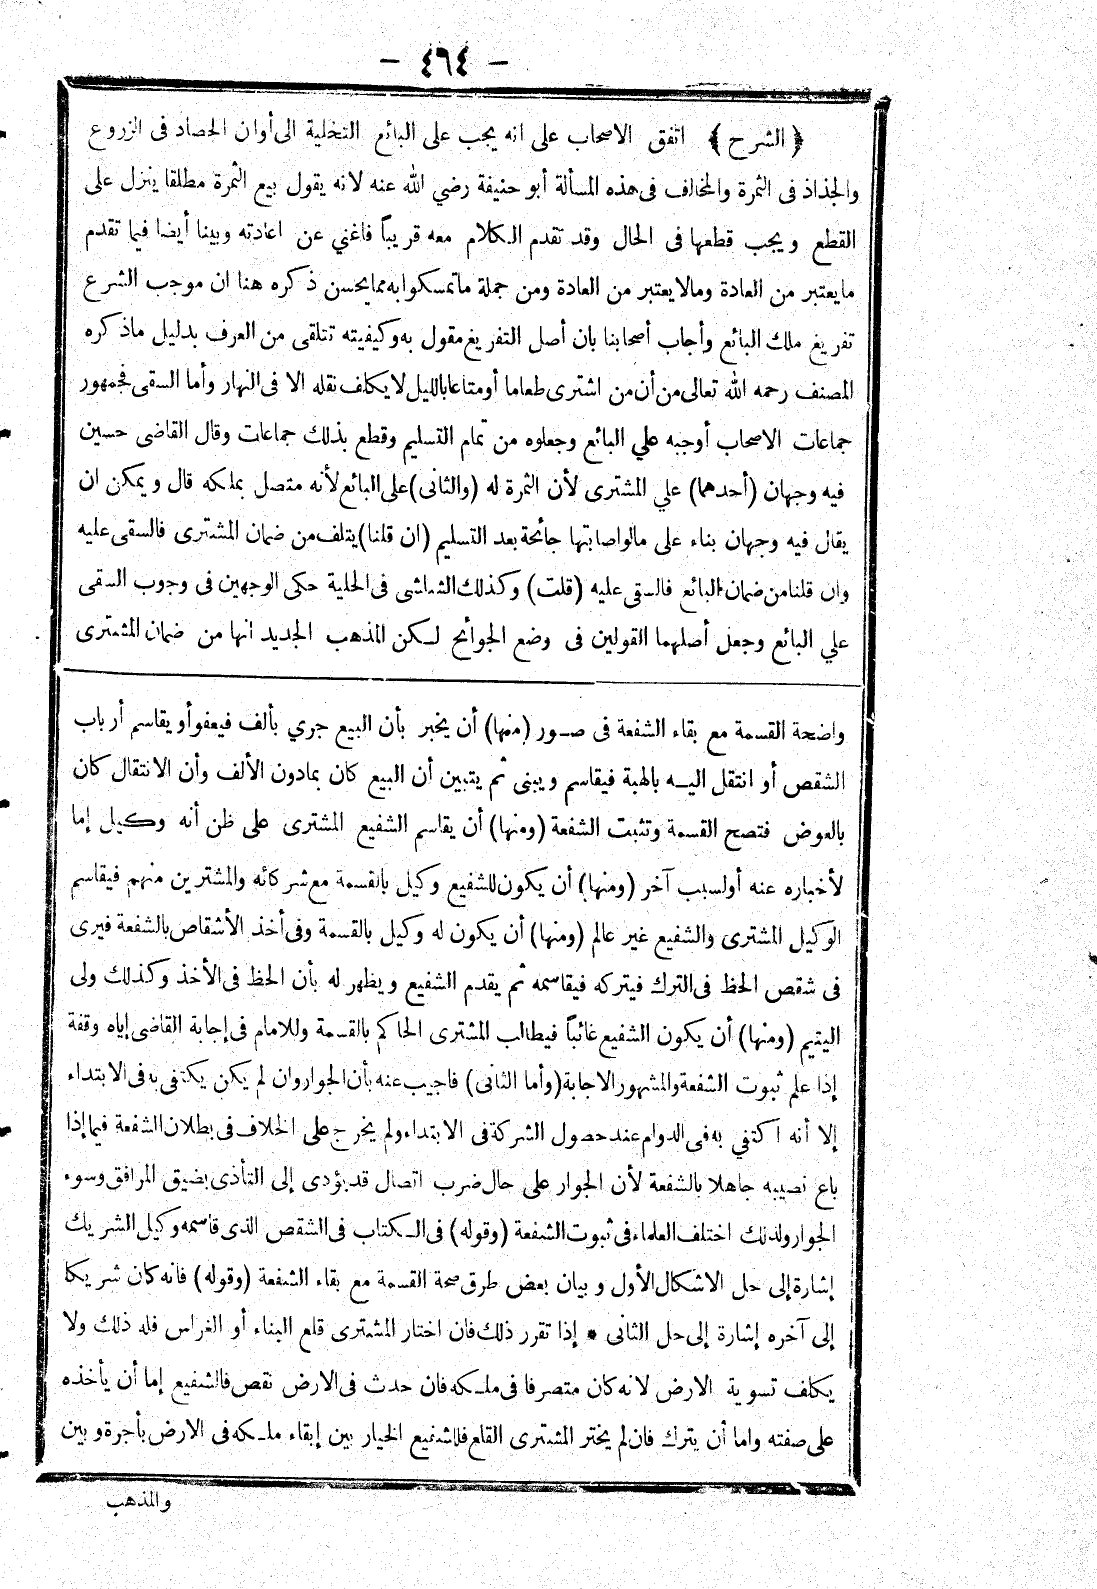 - ٤٦٤ -
﴿الشرح﴾ اتفق الاصحاب على انه يجب على البائع التخلية الى أوان الحصاد فى الزروع
والجذاذ فى الثمرة والمخالف فى هذه المسألة أبو حنيفة رضي الله عنه لانه يقول بيع الثمرة مطلقا ينزل على
القطع ويجب قطعها فى الحال وقد تقدم الكلام معه قريباً فاغني عن اعادته وبينا أيضا فيما تقدم
مايعتبر من العادة ومالا يعتبر من العادة ومن جملة ماتمسكوا به مما يحسن ذكره هنا ان موجب الشرع
تفريغ ملك البائع وأجاب أصحابنا بان أصل التفريغ مقول به وكيفيته تتلقى من العرف بدليل ماذكره
المصنف رحمه الله تعالى من أن من اشترى طعاما أو متاعا بالليل لا يكلف نقله الا فى النهار وأما السقى فجمهور
جماعات الاصحاب أوجبه علي البائع وجعلوه من تمام التسليم وقطع بذلك جماعات وقال القاضى حسين
فيه وجهان (أحدهما) علي المشترى لأن الثمرة له (والثانى) على البائع لأنه متصل بملكه قال ويمكن ان
يقال فيه وجهان بناء على مالو اصابتها جائحة بعد التسليم (ان قلنا) يتلف من ضمان المشترى فالسقى عليه
وان قلنا من ضمان البائع فالسقى عليه (قلت) وكذلك الشاشى فى الحلية حكى الوجهين فى وجوب السقى
علي البائع وجعل أصلهما القولين فى وضع الجوائح لـكن المذهب الجديد انها من ضمان المشترى
واضحة القسمة مع بقاء الشفعة فى صور (منها) أن يخبر بأن البيع جري بألف فيعفو أو يقاسم أرباب
الشقص أو انتقل اليـه بالهبة فيقاسم ويبنى ثم يتبين أن البيع كان بمادون الألف وأن الانتقال كان
بالعوض فتصح القسمة وتثبت الشفعة (ومنها) أن يقاسم الشفيع المشترى على ظن أنه وكيل إما
لأخباره عنه أولسبب آخر (ومنها) أن يكون للشفيع وكيل بالقسمة مع شركائه والمشترين منهم فيقاسم
الوكيل المشترى والشفيع غير عالم (ومنها) أن يكون له وكيل بالقسمة وفى أخذ الأشقاص بالشفعة فيرى
فى شقص الحظ فى الترك فيتركه فيقاسمه ثم يقدم الشفيع ويظهر له بأن الحظ فى الأخذ وكذلك ولى
اليتيم (ومنها) أن يكون الشفيع غائباً فيطالب المشترى الحاكم بالقسمة وللامام فى إجابة القاضى إياه وقفة
إذا علم ثبوت الشفعة والمشهور الاجابة (وأما الثانى) فاجيب عنه بأن الجوار وان لم يكن يكتفى به فى الابتداء
إلا أنه اكتفي به فى الدوام عند حصول الشركة فى الابتداء ولم يخرج على الخلاف فى بطلان الشفعة فيما إذا
باع نصيبه جاهلا بالشفعة لأن الجوار على حال ضرب اتصال قد يؤدى إلى التأذى بضيق المرافق وسوء
الجوار ولذلك اختلف العلماء فى ثبوت الشفعة (وقوله) فى الـكتاب فى الشقص الذى قاسمه وكيل الشريك
إشارة إلى حل الاشكال الأول وبيان بعض طرق صحة القسمة مع بقاء الشفعة (وقوله) فانه كان شريكا
إلى آخره إشارة إلى حل الثانى * إذا تقرر ذلك فان اختار المشترى قلع البناء أو الغراس فله ذلك ولا
يكلف تسوية الارض لانه كان متصرفا فى ملـكه فان حدث فى الارض نقص فالشفيع إما أن يأخذه
على صفته واما أن يترك فان لم يختر المشترى القلع فللشفيع الخيار بين إبقاء ملـكه فى الارض بأجرة وبين
والمذهب